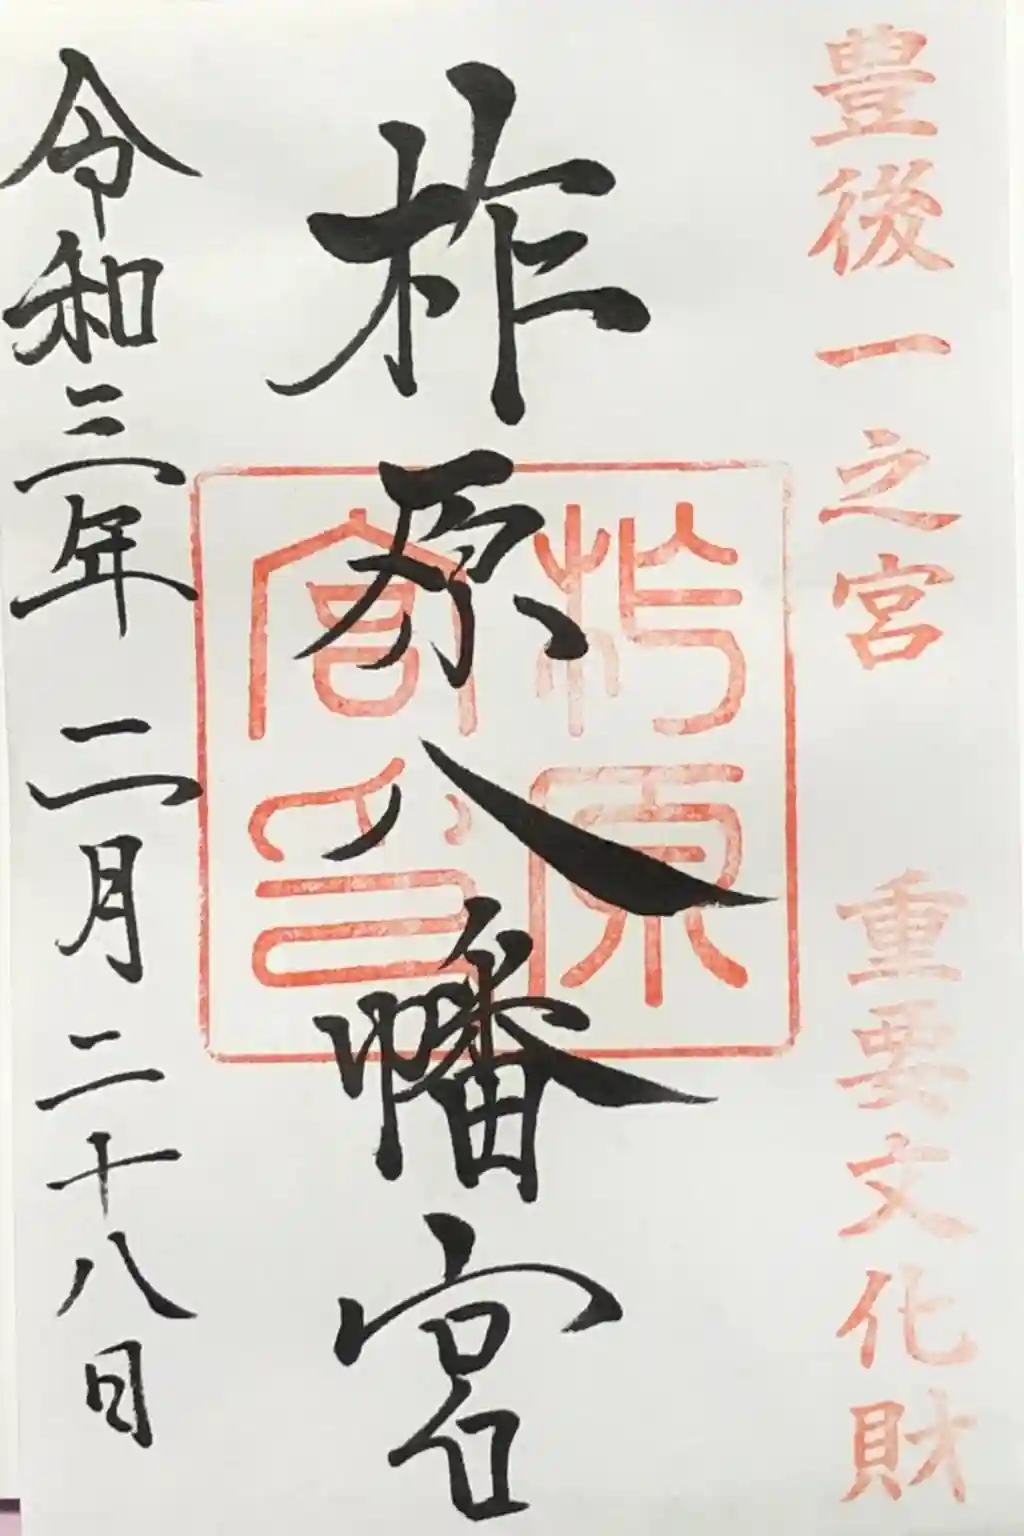 豊後一之宮 重要文化財
柞原八幡宮
柞原宮印
令和三年二月二十八日